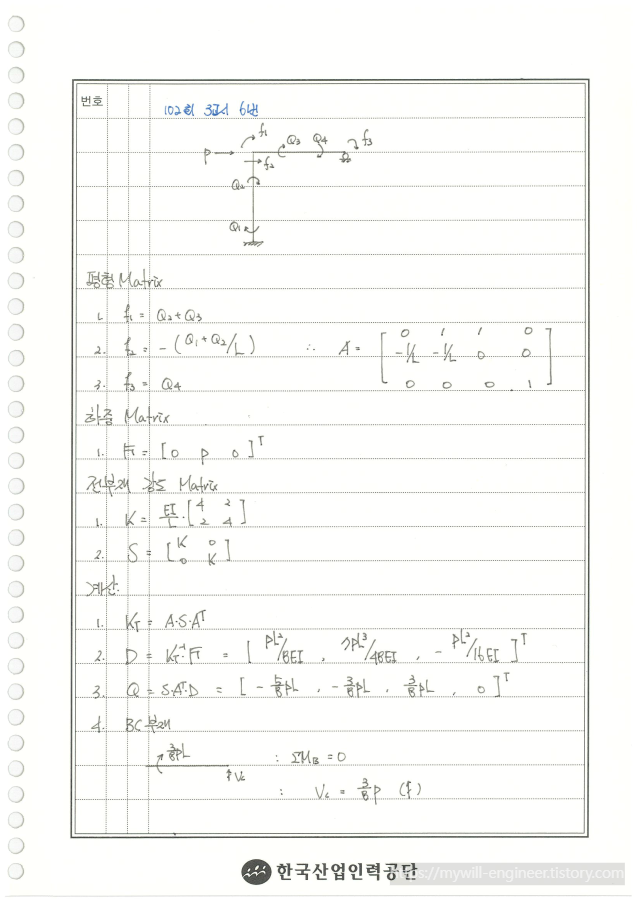 번호
102회 3교시 6번
f₁
P → f₂ Q₃ Q₄ f₃
Q₂
Q₁
평형 Matrix
1. f₁ = Q₂+Q₃
2. f₂ = -(Q₁+Q₂/L) ∴ A = [ 0 1 1 0
-1/L -1/L 0 0
3. f₃ = Q₄ 0 0 0 1 ]
하중 Matrix
1. F = [ 0 P 0 ]ᵀ
전부재 강도 Matrix
1. K = EI/L · [ 4 2
2 4 ]
2. S = [ K 0
0 K ]
계산
1. K_T = A·S·Aᵀ
2. D = K_T⁻¹·F = [ PL²/8EI , 7PL³/48EI , - PL²/16EI ]ᵀ
3. Q = S·Aᵀ·D = [ - 5/8 PL , - 3/8 PL , 3/8 PL , 0 ]ᵀ
4. BC 부재
3/8 PL : ΣM_B = 0
V_c
: V_c = 3/8 P (↑)
한국산업인력공단
https://mywill-engineer.tistory.com